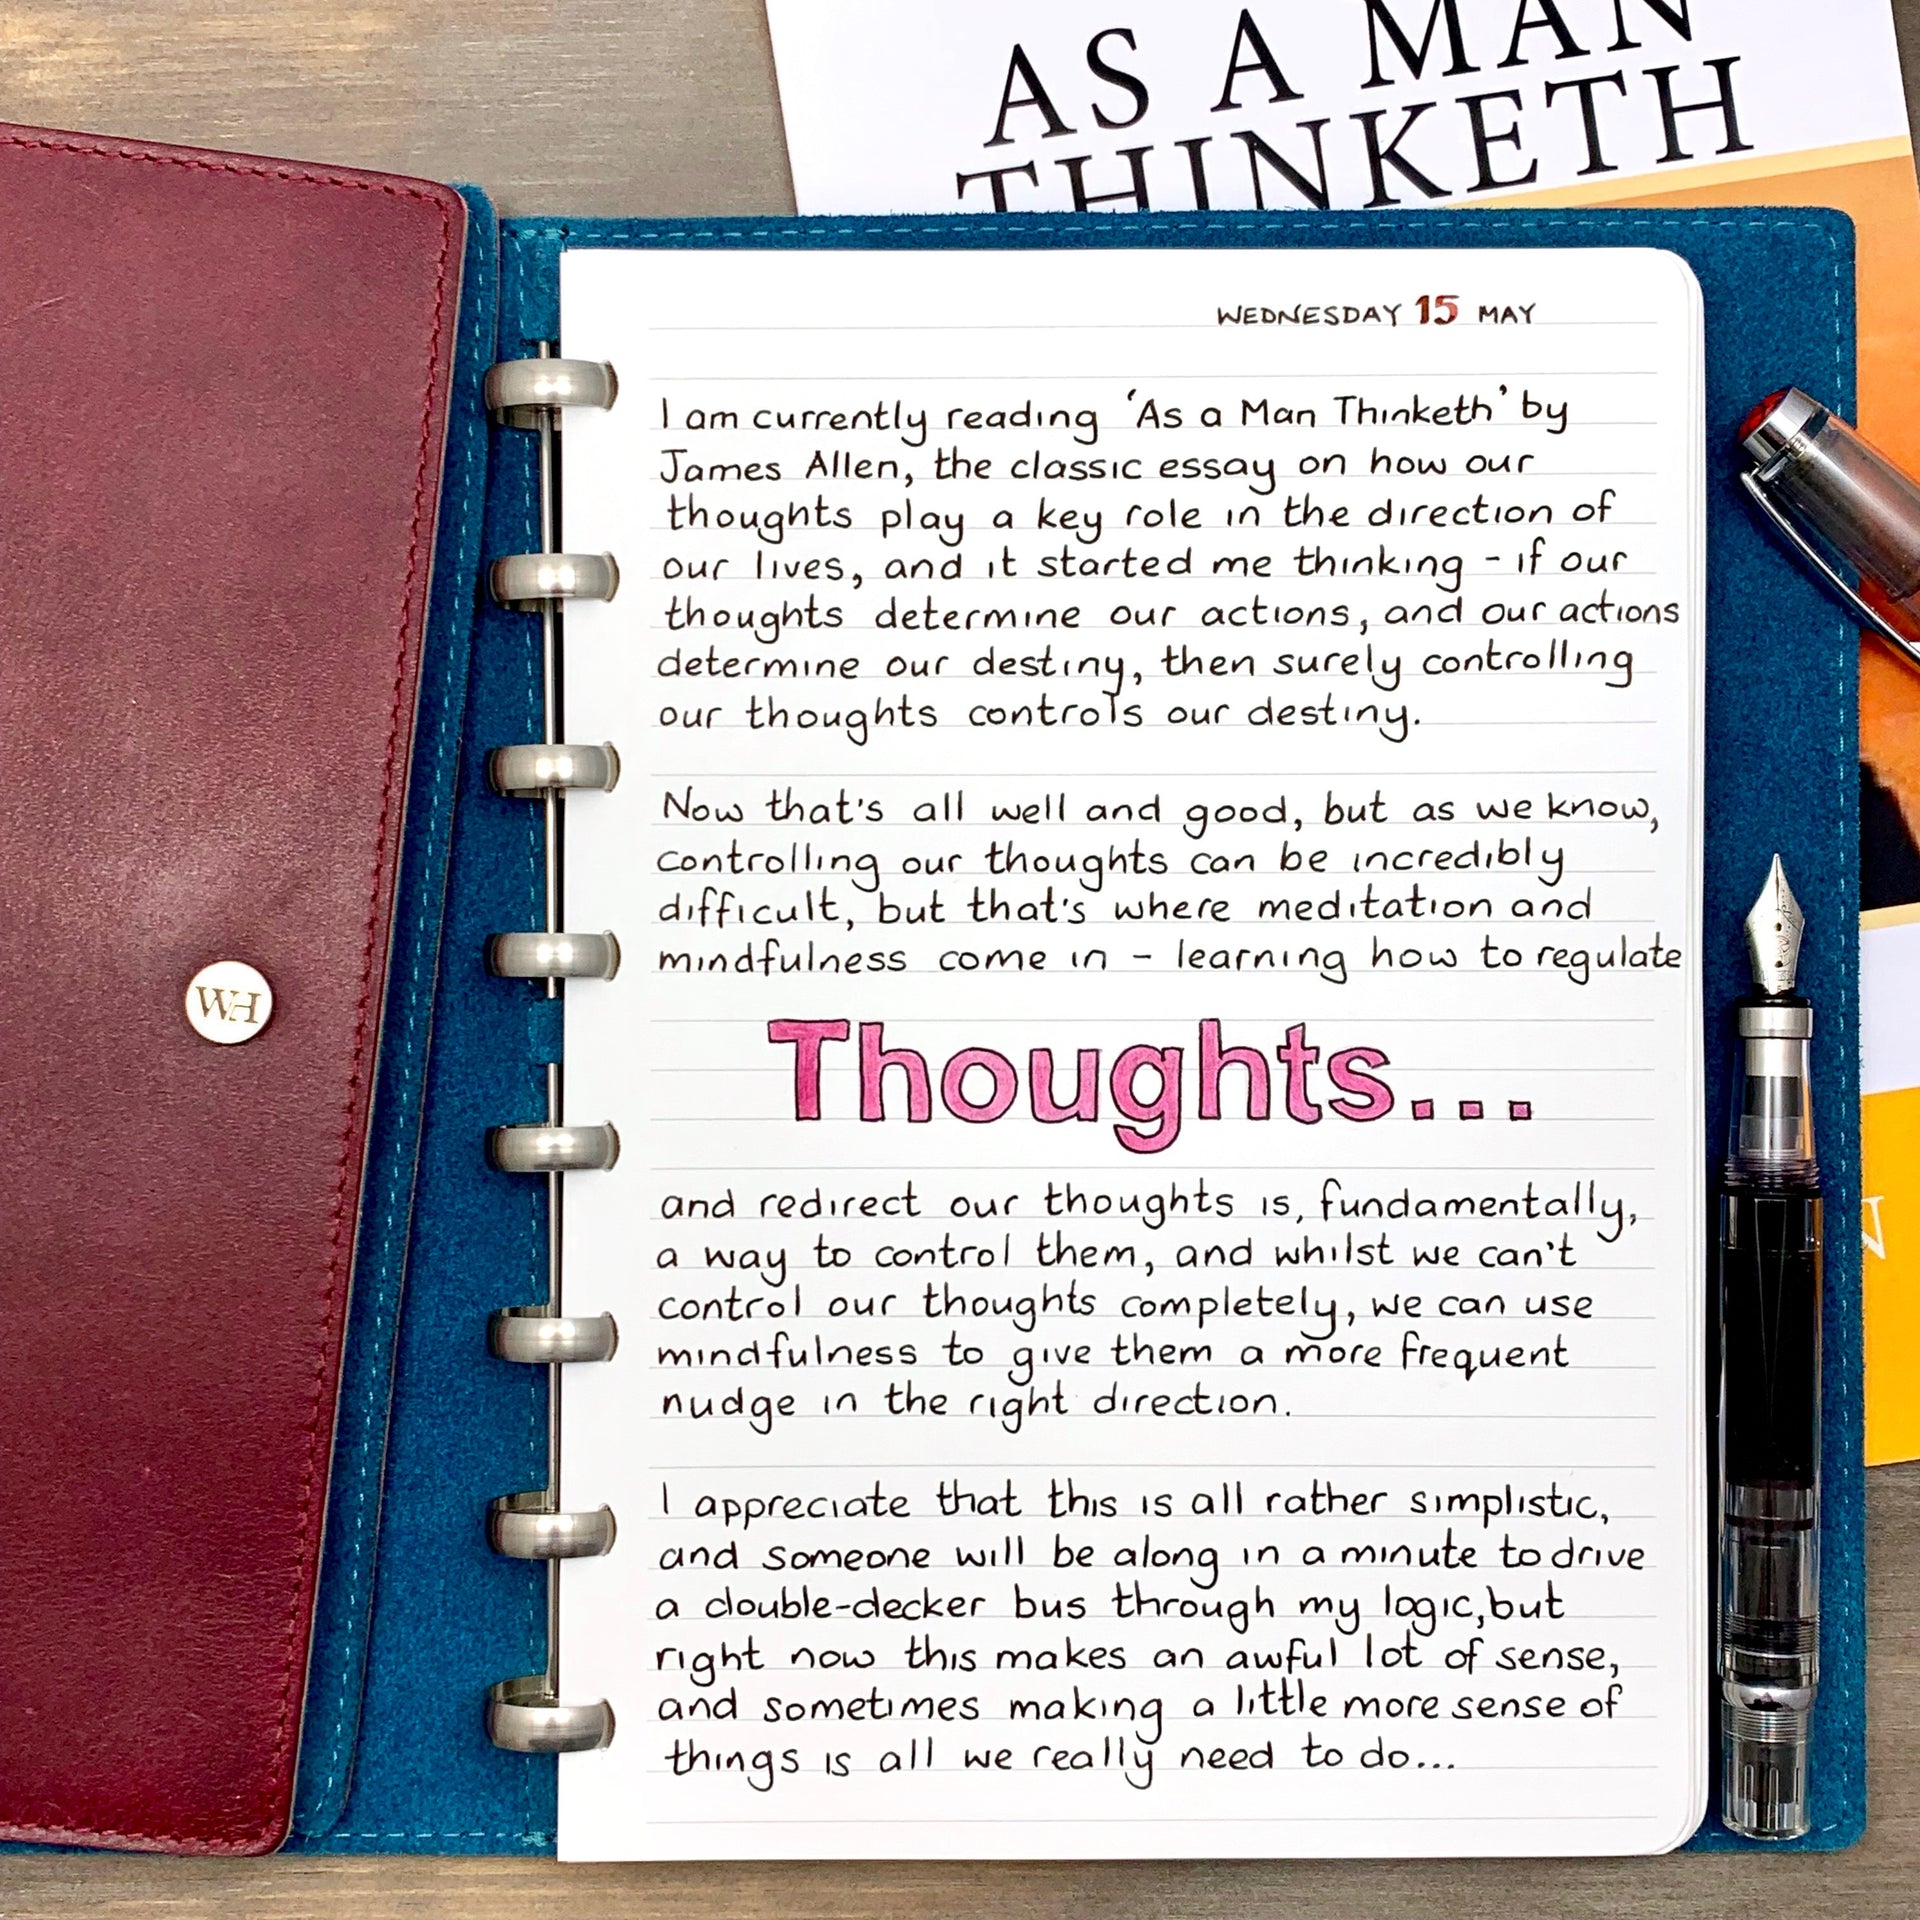 AS A MAN
THINKETH
WEDNESDAY 15 MAY
I am currently reading 'As a Man Thinketh' by
James Allen, the classic essay on how our
thoughts play a key role in the direction of
our lives, and it started me thinking - if our
thoughts determine our actions, and our actions
determine our destiny, then surely controlling
our thoughts controls our destiny.
Now that's all well and good, but as we know,
controlling our thoughts can be incredibly
difficult, but that's where meditation and
mindfulness come in - learning how to regulate
Thoughts...
and redirect our thoughts is, fundamentally,
a way to control them, and whilst we can't
control our thoughts completely, we can use
mindfulness to give them a more frequent
nudge in the right direction.
I appreciate that this is all rather simplistic,
and someone will be along in a minute to drive
a double-decker bus through my logic, but
right now this makes an awful lot of sense,
and sometimes making a little more sense of
things is all we really need to do...
WH